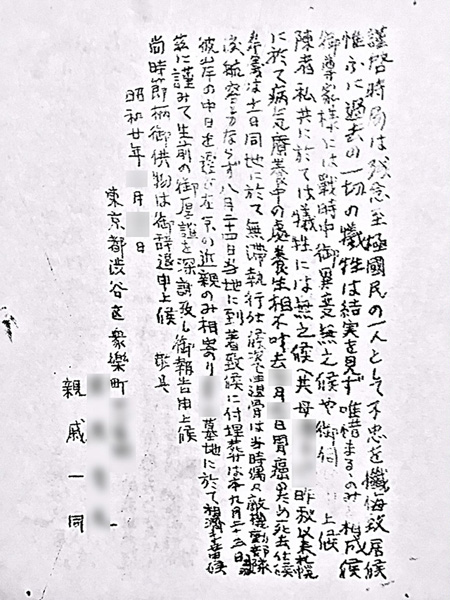 謹啓時局は残念至極國民の一人として不忠を懺悔致居候
惟ふに過去の一切の犠牲は結実を見ず唯惜まるゝのみと相成候
御尊家様には戰時中御異変無之候や御伺 上候
陳者私共に於ては犠牲には無之候へ共母 昨秋以来札幌
に於て病気療養中の處養生相不叶去 月 日胃癌の為め死去仕候
葬儀は十一日同地に於て無滞執行仕候次で遺骨は当時偶々敵機動部隊
次航空 ならず八月二十四日当地に到着致候に付埋葬は本九月二十三日
彼岸の中日を選び在京の近親のみ相寄り 墓地に於て相済ませ申候
茲に謹みて生前の御厚誼を深謝致し御報告申上候
尚時節柄御供物は御辞退申上候 敬具
昭和廿年 月 日
東京都渋谷区衆樂町 一
親戚一同